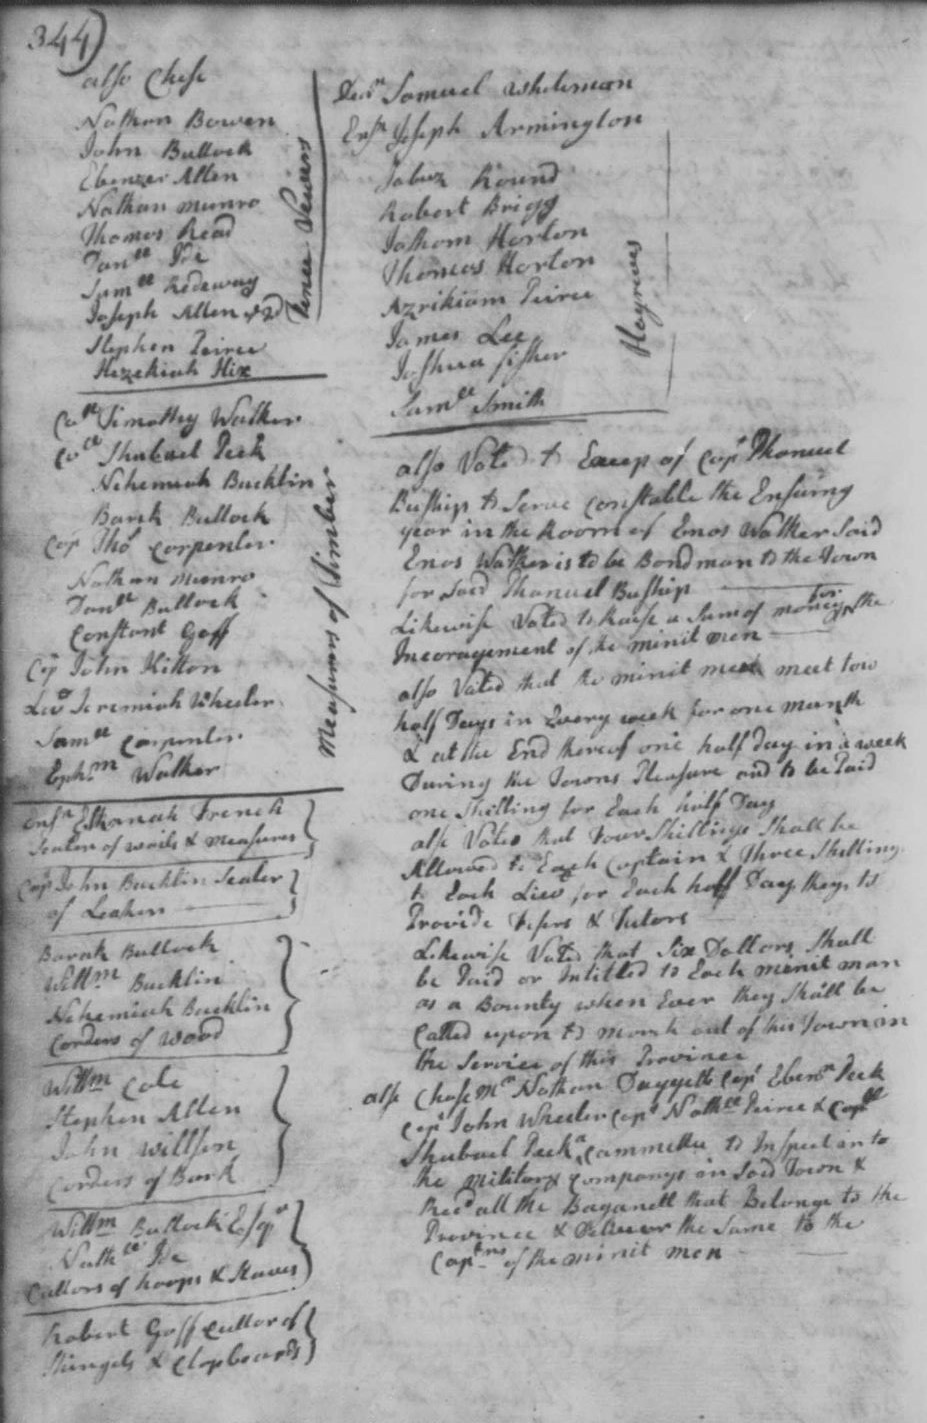 344)
also Chose
Nathan Bowen
John Bullock
Ebenezer Allen
Nathan Munro
Thomas Read
Danll Ide
Samll Redeway
Joseph Allen
Stephen Peirce
Hezekiah Hix
Fence Veiwers
Timothy Walker
Shubael Peck
Nehemiah Bucklin
Barak Bullock
Cap Tho Carpenter
Nathan Munro
Danll Bullock
Constant Goff
Cap John Hilton
Lieu Jeremiah Wheeler
Samll Carpenter
Ephm Walker
Measurers of Timber
Ensn Elkanah French
Sealer of waits & measures
Cap John Bucklin Sealer
of Leather
Barak Bullock
Willm Bucklin
Nehemiah Bucklin
Corders of wood
Willm Cole
Stephen Allen
John Willson
Corders of Bark
Willm Bullock Esqr
Nathll Ide
Cullors of hoops & Staves
Robert Goff Cullor of
Shingels & Clapboards
Samuel Whiteman
Ensn Joseph Armington
Jabez Round
Robert Brigg
Jathom Horton
Thomas Horton
Azrikiam Peirce
James Lee
Joshua fisher
Samll Smith
Hogreves
also Voted to Excep of Cap Phanuel
Buship to Serve Constable the Ensuing
year in the Room of Enos Walker Said
Enos Walker is to be Bondman to the Town
for Said Phanuel Buship
Likewise Voted to Raise a Sum of money for the
Incoragement of the minit men
also Voted that the minit men meet tow
half Days in Every week for one Munth
& at the End thereof one half day in a week
During the Towns Pleasure and to be Paid
one Shilling for Each half Day
also Voted that Four Shillings Shall be
Allowed to Each Captain & Three Shilling
to Each Lieu for Each half Day they to
Provide Fifers & Tutors
Likewise Voted that Six Dollors Shall
be Paid or Intitled to Each minit man
as a Bounty when Ever they Shall be
Called upon to march out of his Town in
the Service of this Province
also Chose Mr Nathan Daggett Cap Ebenr Peck
Cap John Wheeler Cap Nathll Peirce & Capt
Shubael Peck a Cammittee to Inspect in to
the military Companys in Said Town &
Recd all the Baganett that Belongs to the
Province & Deliver the Same to the
Captns of the minit men